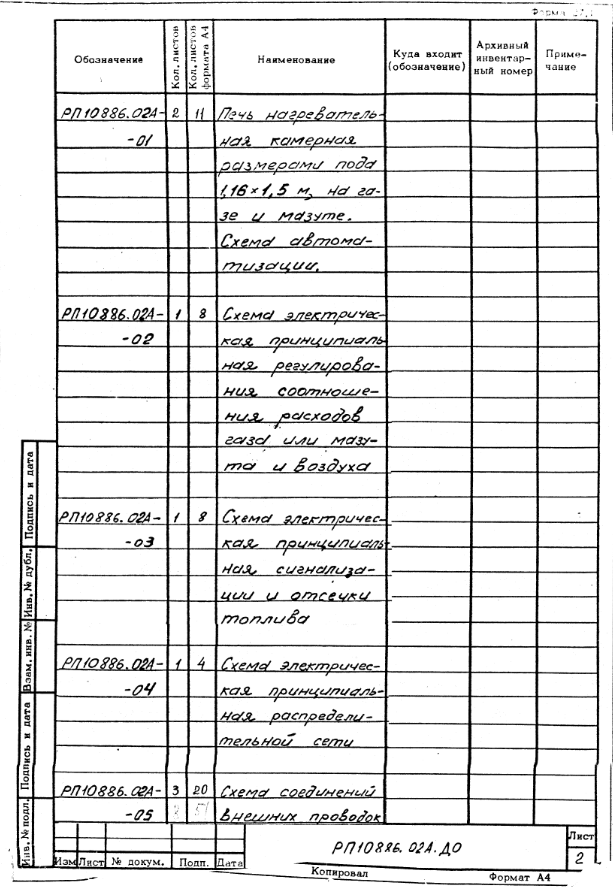 Обозначение Кол. листов Кол. листов формата А4 Наименование Куда входит (обозначение) Архивный инвентарный номер Примечание
РП10886.02А- 2 11 Печь нагреватель-
-01 ная камерная
размерами пода
1,16×1,5 м, на га-
зе и мазуте.
Схема автома-
тизации.
РП10886.02А- 1 8 Схема электричес-
-02 кая принципиаль
ная регулирова-
ния соотноше-
ния расходов
газа или мазу-
та и воздуха
РП10886.02А- 1 8 Схема электричес-
-03 кая принципиаль-
ная сигнализа-
ции и отсечки
топлива
РП10886.02А- 1 4 Схема электричес-
-04 кая принципиаль-
ная распредели-
тельной сети
РП10886.02А- 3 20 Схема соединений
-05 внешних проводок
Инв. № подл. Подпись и дата Взам. инв. № Инв. № дубл. Подпись и дата
РП10886.02А.ДО
Лист
2
Изм Лист № докум. Подп. Дата
Копировал Формат А4